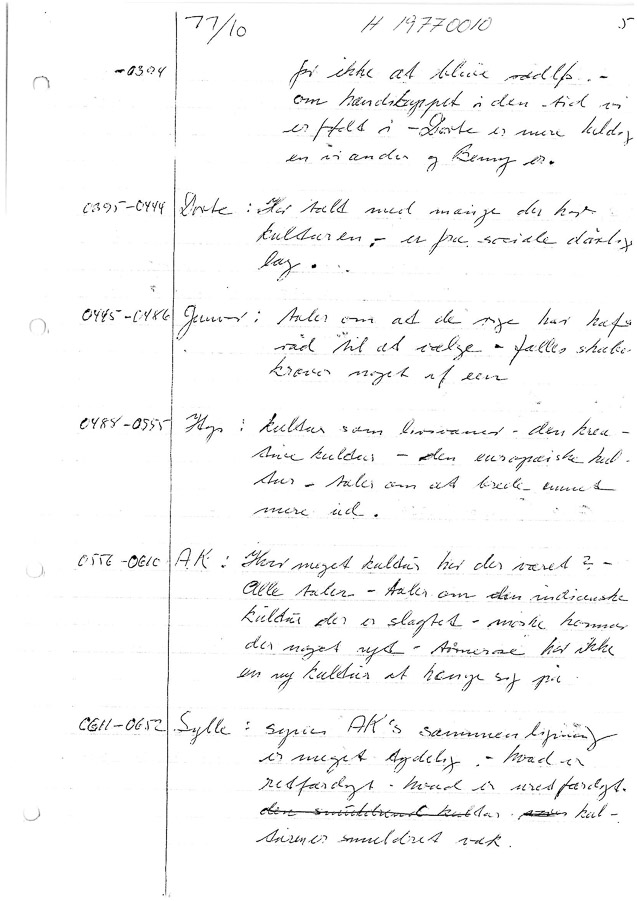 77/10 H 19770010 5
-0394 for ikke at blive rodløs. -
om håndskyppet i den tid vi
er født i - Dorte er mere heldig
en vi andre og Benny er.
0395-0444 Dorte : Har talt med mange der har
kulturen, - er fra sociale dårlig
lag. . .
0445-0486 Gunvor : taler om at de rige har haft
råd til at vælge - fælles skabe
kræver noget af een
0487-0555 : kultur som livsvaner - den krea-
tive kultur - den europæiske kul-
tur - taler om at brede emnet
mere ud.
0556-0610 AK : Hvor meget kultur har der været ? -
Alle taler - taler om den indianske
kultur der er slagtet - måske kommer
der noget nyt - har ikke
en ny kultur at hænge sig på.
0611-0652 Sylle : synes AK's sammenligning
er meget tydelig. - hvad er
retfærdigt - hvad er uretfærdigt.
den smuldrend kultur. kul-
turen er smuldret væk.